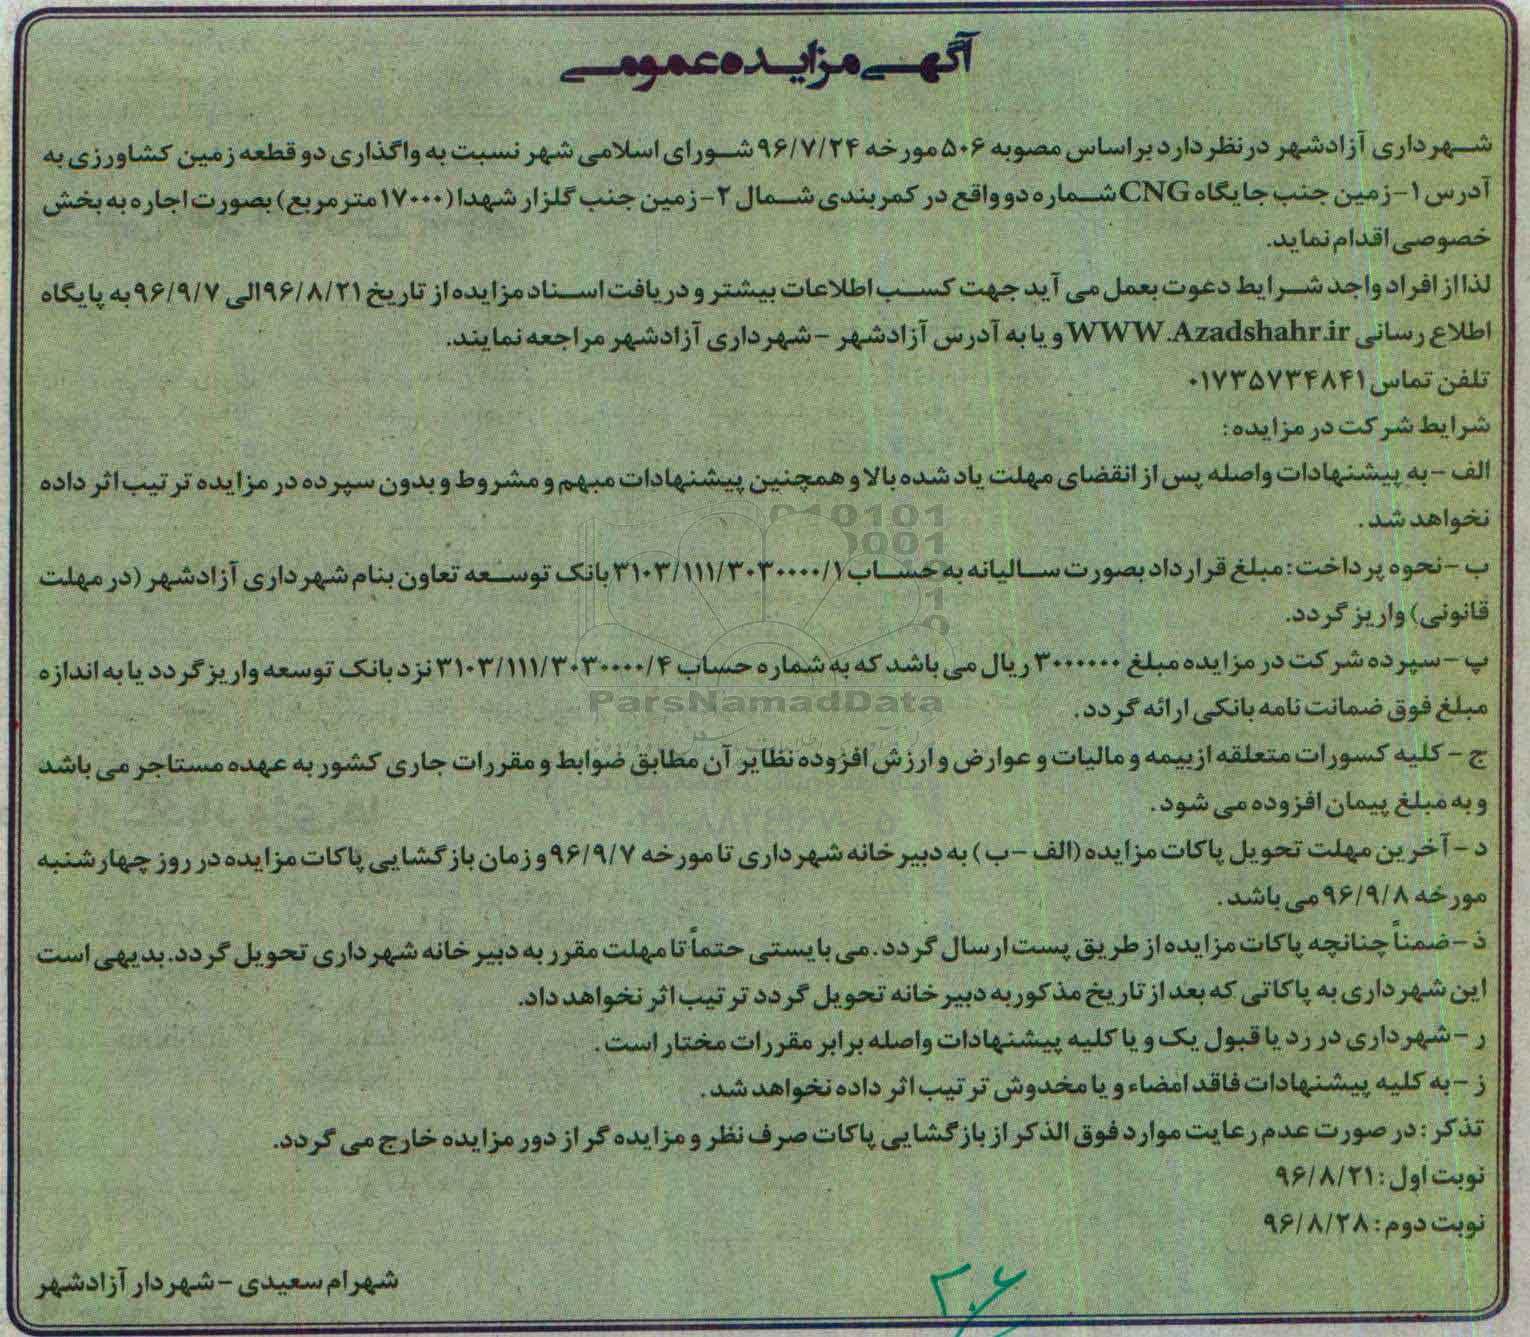 آگهی مزایده عمومی
شهرداری آزادشهر در نظر دارد بر اساس مصوبه ۵۰۶ مورخه ۹۶/۷/۲۴ شورای اسلامی شهر نسبت به واگذاری دو قطعه زمین کشاورزی به
آدرس ۱- زمین جنب جایگاه CNG شماره دو واقع در کمربندی شمال ۲- زمین جنب گلزار شهدا (۱۷۰۰۰ مترمربع) بصورت اجاره به بخش
خصوصی اقدام نماید.
لذا از افراد واجد شرایط دعوت بعمل می آید جهت کسب اطلاعات بیشتر و دریافت اسناد مزایده از تاریخ ۹۶/۸/۲۱ الی ۹۶/۹/۷ به پایگاه
اطلاع رسانی WWW.Azadshahr.ir و یا به آدرس آزادشهر - شهرداری آزادشهر مراجعه نمایند.
تلفن تماس ۰۱۷۳۵۷۳۴۸۴۱
شرایط شرکت در مزایده :
الف - به پیشنهادات واصله پس از انقضای مهلت یاد شده بالا و همچنین پیشنهادات مبهم و مشروط و بدون سپرده در مزایده ترتیب اثر داده
نخواهد شد .
ب - نحوه پرداخت : مبلغ قرارداد بصورت سالیانه به حساب ۳۱۰۳/۱۱۱/۳۰۳۰۰۰۰/۱ بانک توسعه تعاون بنام شهرداری آزادشهر (در مهلت
قانونی) واریز گردد.
پ - سپرده شرکت در مزایده مبلغ ۳۰۰۰۰۰۰ ریال می باشد که به شماره حساب ۳۱۰۳/۱۱۱/۳۰۳۰۰۰۰/۴ نزد بانک توسعه واریز گردد یا به اندازه
مبلغ فوق ضمانت نامه بانکی ارائه گردد .
ج - کلیه کسورات متعلقه از بیمه و مالیات و عوارض و ارزش افزوده نظایر آن مطابق ضوابط و مقررات جاری کشور به عهده مستاجر می باشد
و به مبلغ پیمان افزوده می شود .
د - آخرین مهلت تحویل پاکات مزایده (الف - ب) به دبیرخانه شهرداری تا مورخه ۹۶/۹/۷ و زمان بازگشایی پاکات مزایده در روز چهارشنبه
مورخه ۹۶/۹/۸ می باشد .
ذ - ضمناً چنانچه پاکات مزایده از طریق پست ارسال گردد. می بایستی حتماً تا مهلت مقرر به دبیرخانه شهرداری تحویل گردد. بدیهی است
این شهرداری به پاکاتی که بعد از تاریخ مذکور به دبیرخانه تحویل گردد ترتیب اثر نخواهد داد.
ر - شهرداری در رد یا قبول یک و یا کلیه پیشنهادات واصله برابر مقررات مختار است .
ز - به کلیه پیشنهادات فاقد امضاء و یا مخدوش ترتیب اثر داده نخواهد شد .
تذکر : در صورت عدم رعایت موارد فوق الذکر از بازگشایی پاکات صرف نظر و مزایده گر از دور مزایده خارج می گردد.
نوبت اول : ۹۶/۸/۲۱
نوبت دوم : ۹۶/۸/۲۸
شهرام سعیدی - شهردار آزادشهر
۲۰۶
ParsNamadData